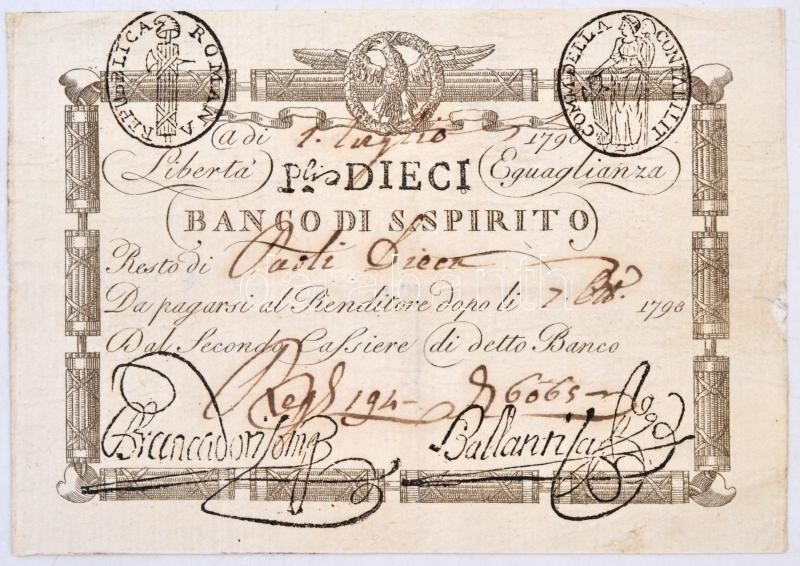 REPUBLICA ROMANA
COMM. DELLA CONTABILIT
A di 1. luglio 1798
Libertà Plis DIECI Eguaglianza
BANCO DI S. SPIRITO
Resto di Paoli Dieci
Da pagarsi al Renditore dopo li 7. 1798
Dal Secondo Cassiere di detto Banco
Reg. 194 6065
darabanth